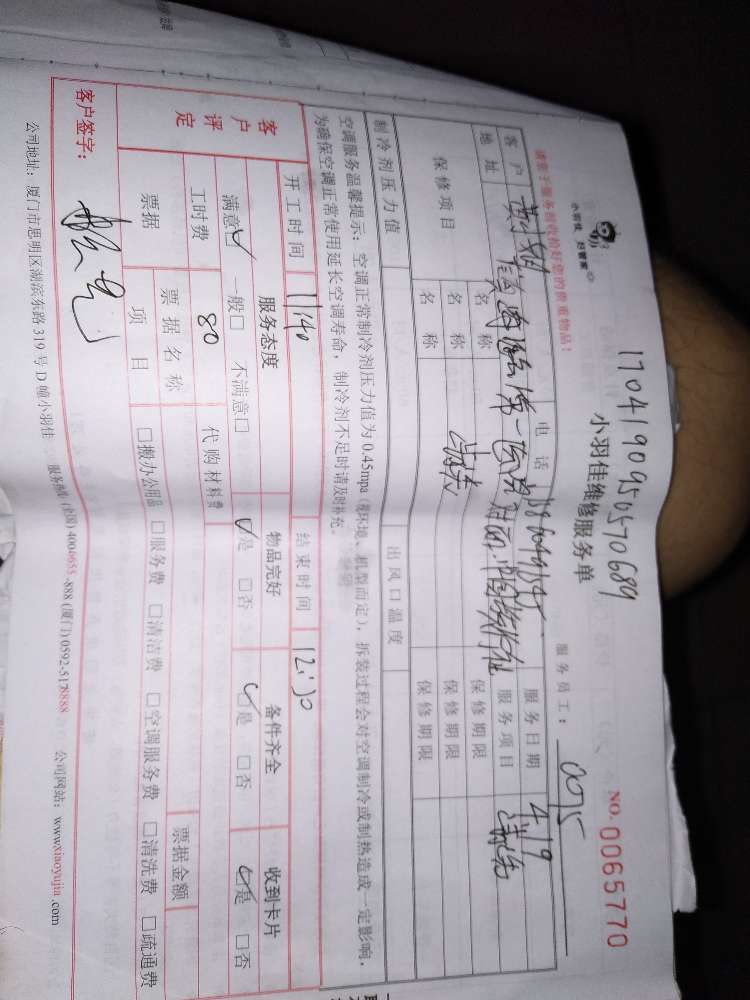 1704190950570689
小羽佳 好管家
小羽佳维修服务单
NO. 0065770
服务员工： 0075
请客户服务前收拾好您的贵重物品！
客户 电话 服务日期 4/19
地址 第一医院对面 服务项目
保修项目 名称 保修期限
名称 保修期限
名称 保修期限
制冷剂压力值 出风口温度
空调服务温馨提示：空调正常制冷剂压力值为0.45mpa（视环境、机型而定），拆装过程会对空调制冷或制热造成一定影响，
为确保空调正常使用延长空调寿命，制冷剂不足时请及时补充。
开工时间 11:40 结束时间 12:30
客户评定 服务态度 物品完好 备件齐全 收到卡片
满意☑ 一般□ 不满意□ ☑是 □否 ☑是 □否 ☑是 □否
工时费 80 代购材料费
票据 票据名称 票据金额
项目 □搬办公用品 □服务费 □清洁费 □空调服务费 □清洗费 □疏通费
客户签字：
公司地址：厦门市思明区湖滨东路319号D幢小羽佳 服务热线：(全国)4006655-888 (厦门)0592-5178888 公司网站：www.xiaoyujia.com